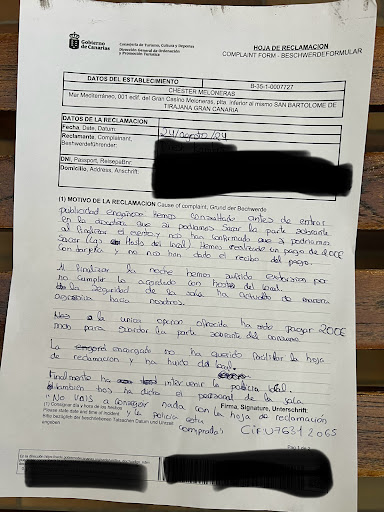 Gobierno
de Canarias
Consejería de Turismo, Cultura y Deportes
Dirección General de Ordenación
y Promoción Turística
HOJA DE RECLAMACION
COMPLAINT FORM - BESCHWERDEFORMULAR
DATOS DEL ESTABLECIMIENTO
B-35-1-0007727
CHESTER MELONERAS
Mar Mediterráneo, 001 edif. del Gran Casino Meloneras, plta inferior al mismo SAN BARTOLOME DE
TIRAJANA GRAN CANARIA
DATOS DE LA RECLAMACIÓN
Fecha, Date, Datum: 24/agosto/24
Reclamante, Complainant,
Beschwerdeführender:
DNI, Passport, ReisepaBnr:
Domicilio, Address, Anschrift:
(1) MOTIVO DE LA RECLAMACION Cause of complaint, Grund der Bechwerde
publicidad engañosa hemos consultado antes de entrar
en la discoteca que si podíamos sacar la parte sobrante
al finalizar el evento y nos han confirmado que si podríamos
sacar del local. Hemos realizado un pago de 200€
con tarjeta y no nos han dato el recibo del pago.
Al finalizar la noche hemos sufrido por
no cumplir lo acordado con del local.
la seguridad de la sala ha actuado de manera
agresiva hacia nosotros.
la unica opcion ofrecida ha sido pagar 200€
mas para sacar la parte sobrante del consumo.
La encargada no ha querido facilitar la hoja
de reclamación y ha huido del local.
Finalmente ha intervenir la policia local.
tambien nos ha dicho el personal de la sala
Firma, Signature, Unterschrift:
"No vais a conseguir nada con la hoja de reclamación
(1) Consignar día y hora de los hechos
Please state date and time of incident
Bitte bezüglich der beschriebenen Tatsachen Datum und Uhrzeit
angeben
y la policia esta
comprada" CIF U76312065